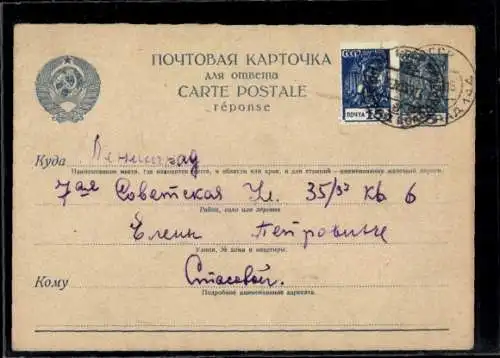 ПОЧТОВАЯ КАРТОЧКА
для ответа
CARTE POSTALE
réponse
СССР
ПОЧТА 15
Куда Ленинград
Наименование места, где находится почта, и области или края, а для станций — наименование железной дороги
7ая Советская ул. 35/37 кв 6
Район, село или деревня
Елене Петровне
Улица, № дома и квартиры
Кому Стасовой.
Подробное наименование адресата